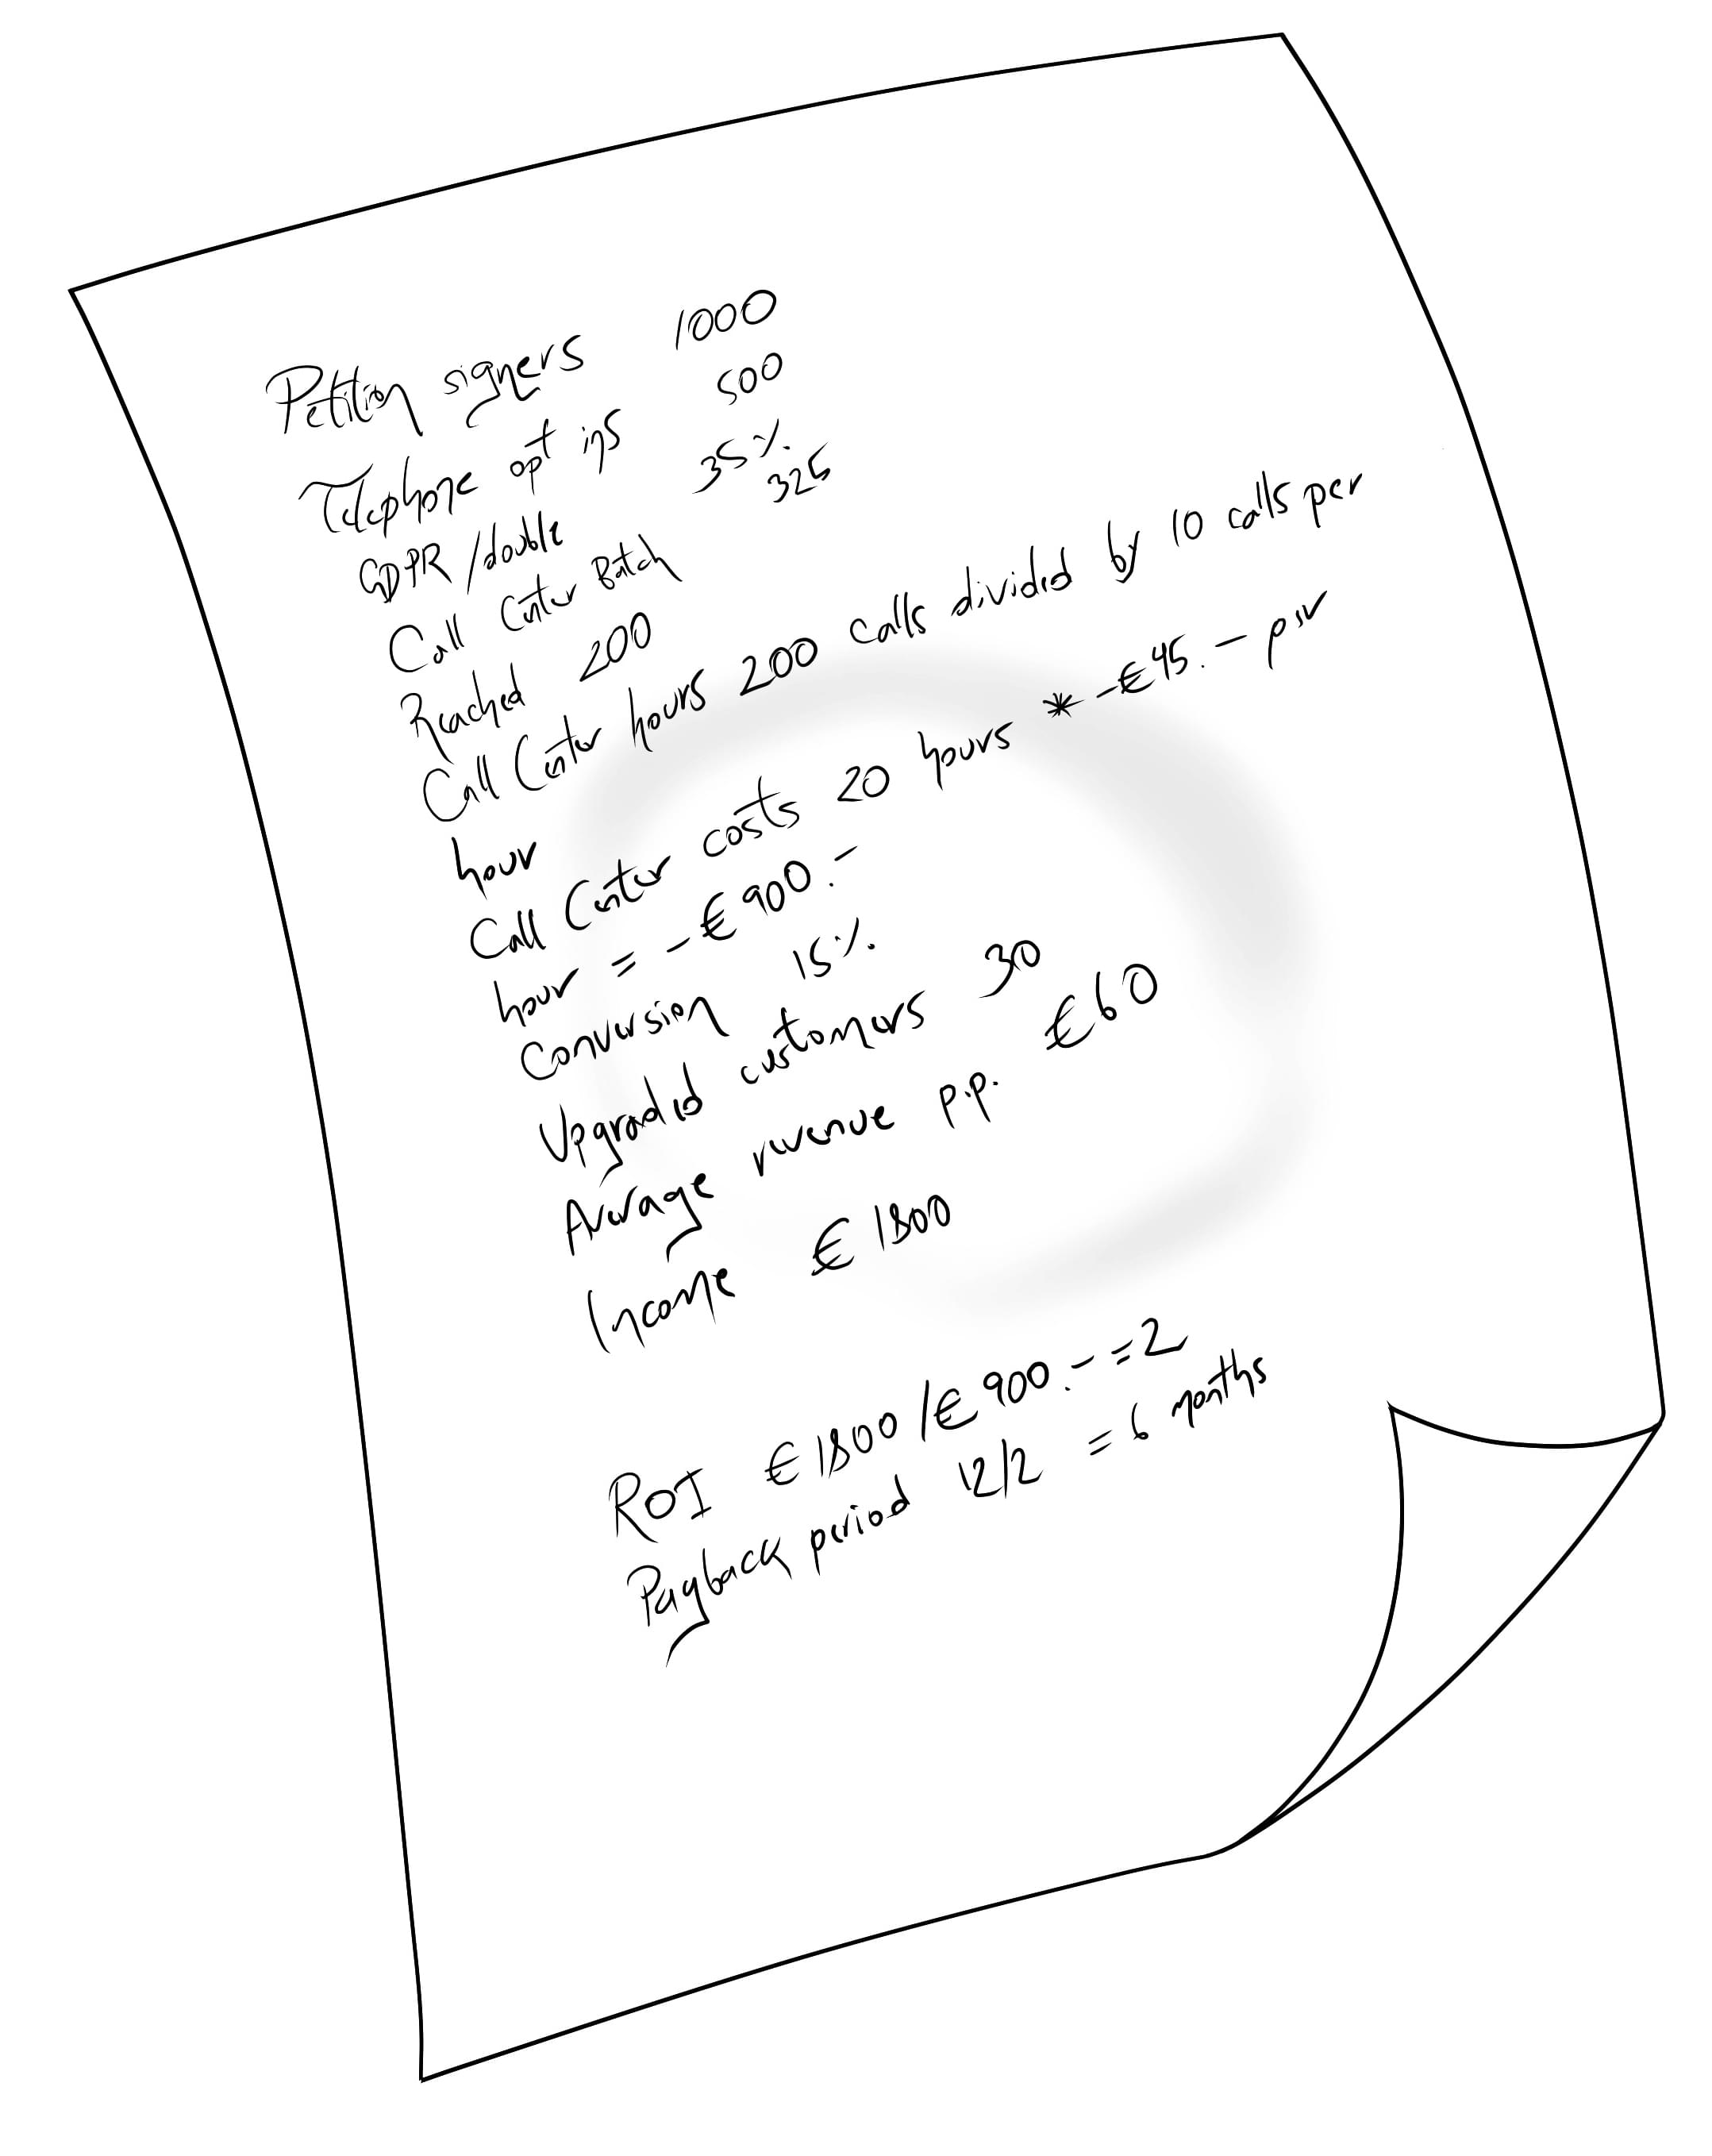 Petition signers 1000
Telephone opt ins 500
GDPR/double 35%
Call Center Batch 325
Reached 200
Call Center hours 200 calls divided by 10 calls per
hour
Call Center costs 20 hours * -€45.- per
hour = -€900.-
Conversion 15%
Upgraded customers 30
Average revenue p.p. €60
Income €1800
ROI €1800/€900.- =2
Payback period 12/2 = 6 months